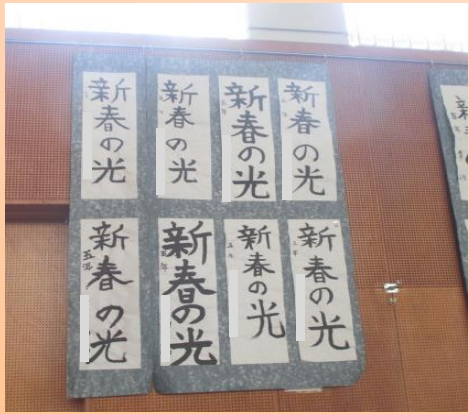 新春の光
新春の光
新春の光
新春の光
新春の光
五年
新春の光
五年
新春の光
五年
新春の光
五年